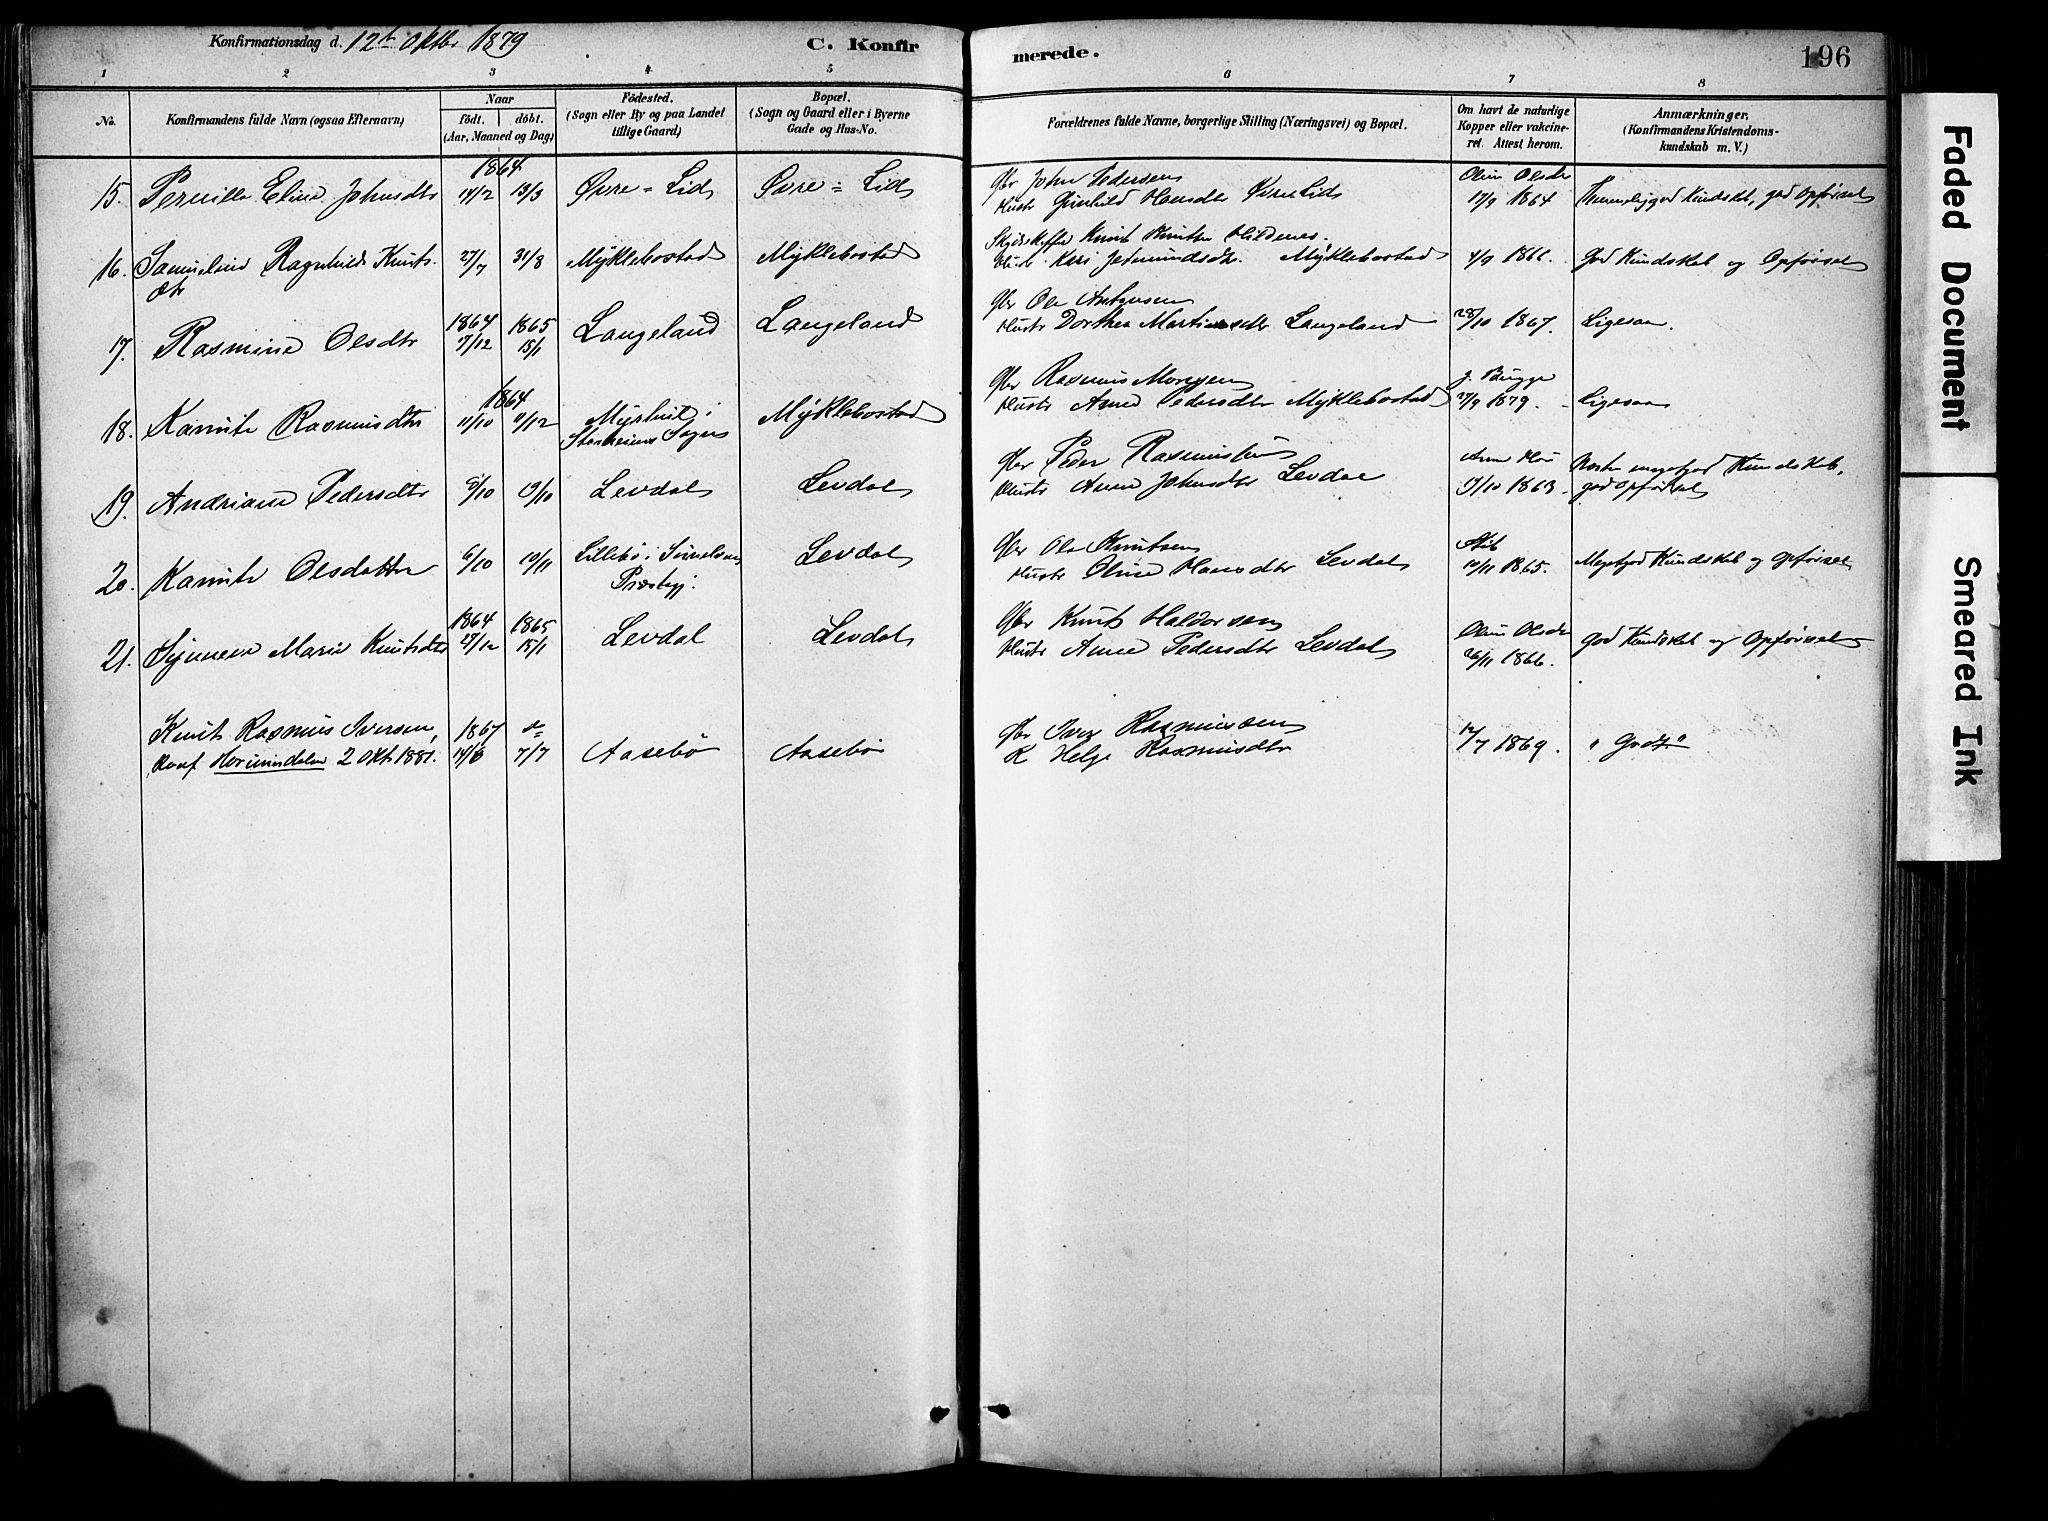 Konfirmationsdag d. 12te Oktbr 1879
C. Konfir
merede.
196
1 2 3 4 5 6 7 8
No.
Konfirmandens fulde Navn (ogsaa Efternavn)
Naar
födt. döbt.
(Aar, Maaned og Dag)
Födested.
(Sogn eller By og paa Landet
tillige Gaard)
Bopæl.
(Sogn og Gaard eller i Byerne
Gade og Hus-No.
Forældrenes fulde Navne, borgerlige Stilling (Næringsvei) og Bopæl.
Om havt de naturlige
Kopper eller vakcine-
ret. Attest herom.
Anmærkninger.
(Konfirmandens Kristendoms-
kundskab m. V.)
1864
15. Pernille Eline Johnsdtr 14/2 13/3 Øvre-Lid Øvre-Lid
Gbr John Pedersen
Hustr Gunhild Hansdtr Øvre Lid
Oline Olsdr
17/9 1864
Temmelig god Kundskab, god Opførsel
16. Samueline Ragnhild Knuts-
dtr
27/7 31/8 Myklebostad Myklebostad
Knut Knutsen Hildenes.
Hustr. Kari Myklebostad
4/9 1866.
god Kundskab og Opførsel
17. Rasmine Olsdtr
1864 1865
7/12 15/1
Langeland Langeland
Gbr Ole Antonsen
Hustr Dorthea Martinusdtr Langeland
28/10 1867.
Ligesaa.
1864
18. Kamite Rasmusdtr 11/10 11/12
Myrhut i
Starheims Sogn
Myklebostad
Gbr Rasmus Monssen
Hustr Anne Pedersdtr Myklebostad
J. Bugge
27/9 1879.
Ligesaa
19. Andriane Pedersdtr 8/10 19/10 Levdal Levdal
Gbr Peder Rasmussen
Hustr Anne Johnsdtr Levdal
9/10 1863.
Næsten megetgod Kundskab,
god Opførsel
20. Kamite Olsdatter 6/10 19/11
Lillebø i
Præstegj.
Levdal
Gbr Ole Knutsen
Hustr Oline Hansdtr Levdal
10/11 1865.
Megetgod Kundskab og Opførsel
21. Synneve Marie Knutsdtr
1864 1865
27/12 15/1
Levdal Levdal
Gbr Knut Haldorsen
Hustr Anne Pedersdtr Levdal
Oline Olsdr
26/11 1866.
god Kundskab og Opførsel
Knut Rasmus Iversen,
Konf Hornindalen 2 Okt. 1881.
1867
14/6 7/7
Aasebø Aasebø
Gbr Iver Rasmussen
K Helge Rasmusdtr
12/7 1869.
"Godt"
Faded Document
Smeared Ink